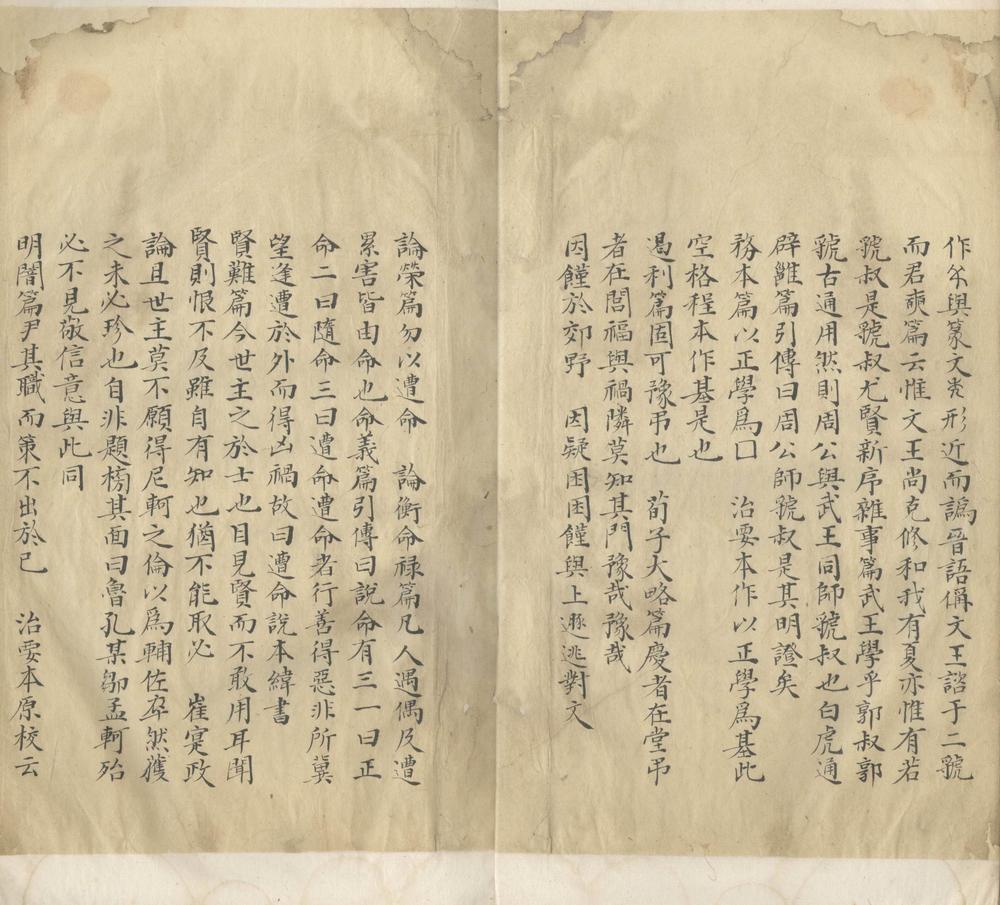 作𡭗與篆文𡴆形近而譌晉語偁文王諮于二虢
而君奭篇云惟文王尚克修和我有夏亦惟有若
虢叔是虢叔尤賢新序雜事篇武王學乎郭叔郭
虢古通用然則周公與武王同師虢叔也白虎通
辟雝篇引傳曰周公師虢叔是其明證矣
務本篇以正學爲囗　治要本作以正學爲基此
空格程本作基是也
遏利篇固可豫弔也　荀子大略篇慶者在堂弔
者在閭福與禍隣莫知其門豫哉豫哉
因饉於郊野　因疑困困饉與上遯逃對文
論榮篇勿以遭命　論衡命祿篇凡人遇偶及遭
累害皆由命也命義篇引傳曰說命有三一曰正
命二曰隨命三曰遭命遭命者行善得惡非所冀
望逢遭於外而得凶禍故曰遭命說本緯書
賢難篇今世主之於士也目見賢而不敢用耳聞
賢則恨不及雖自有知也猶不能取必　崔寔政
論且世主莫不願得尼軻之倫以爲輔佐卒然獲
之未必珍也自非題榜其面曰魯孔某鄒孟軻殆
必不見敬信意與此同
明闇篇尹其職而策不出於己　治要本原校云